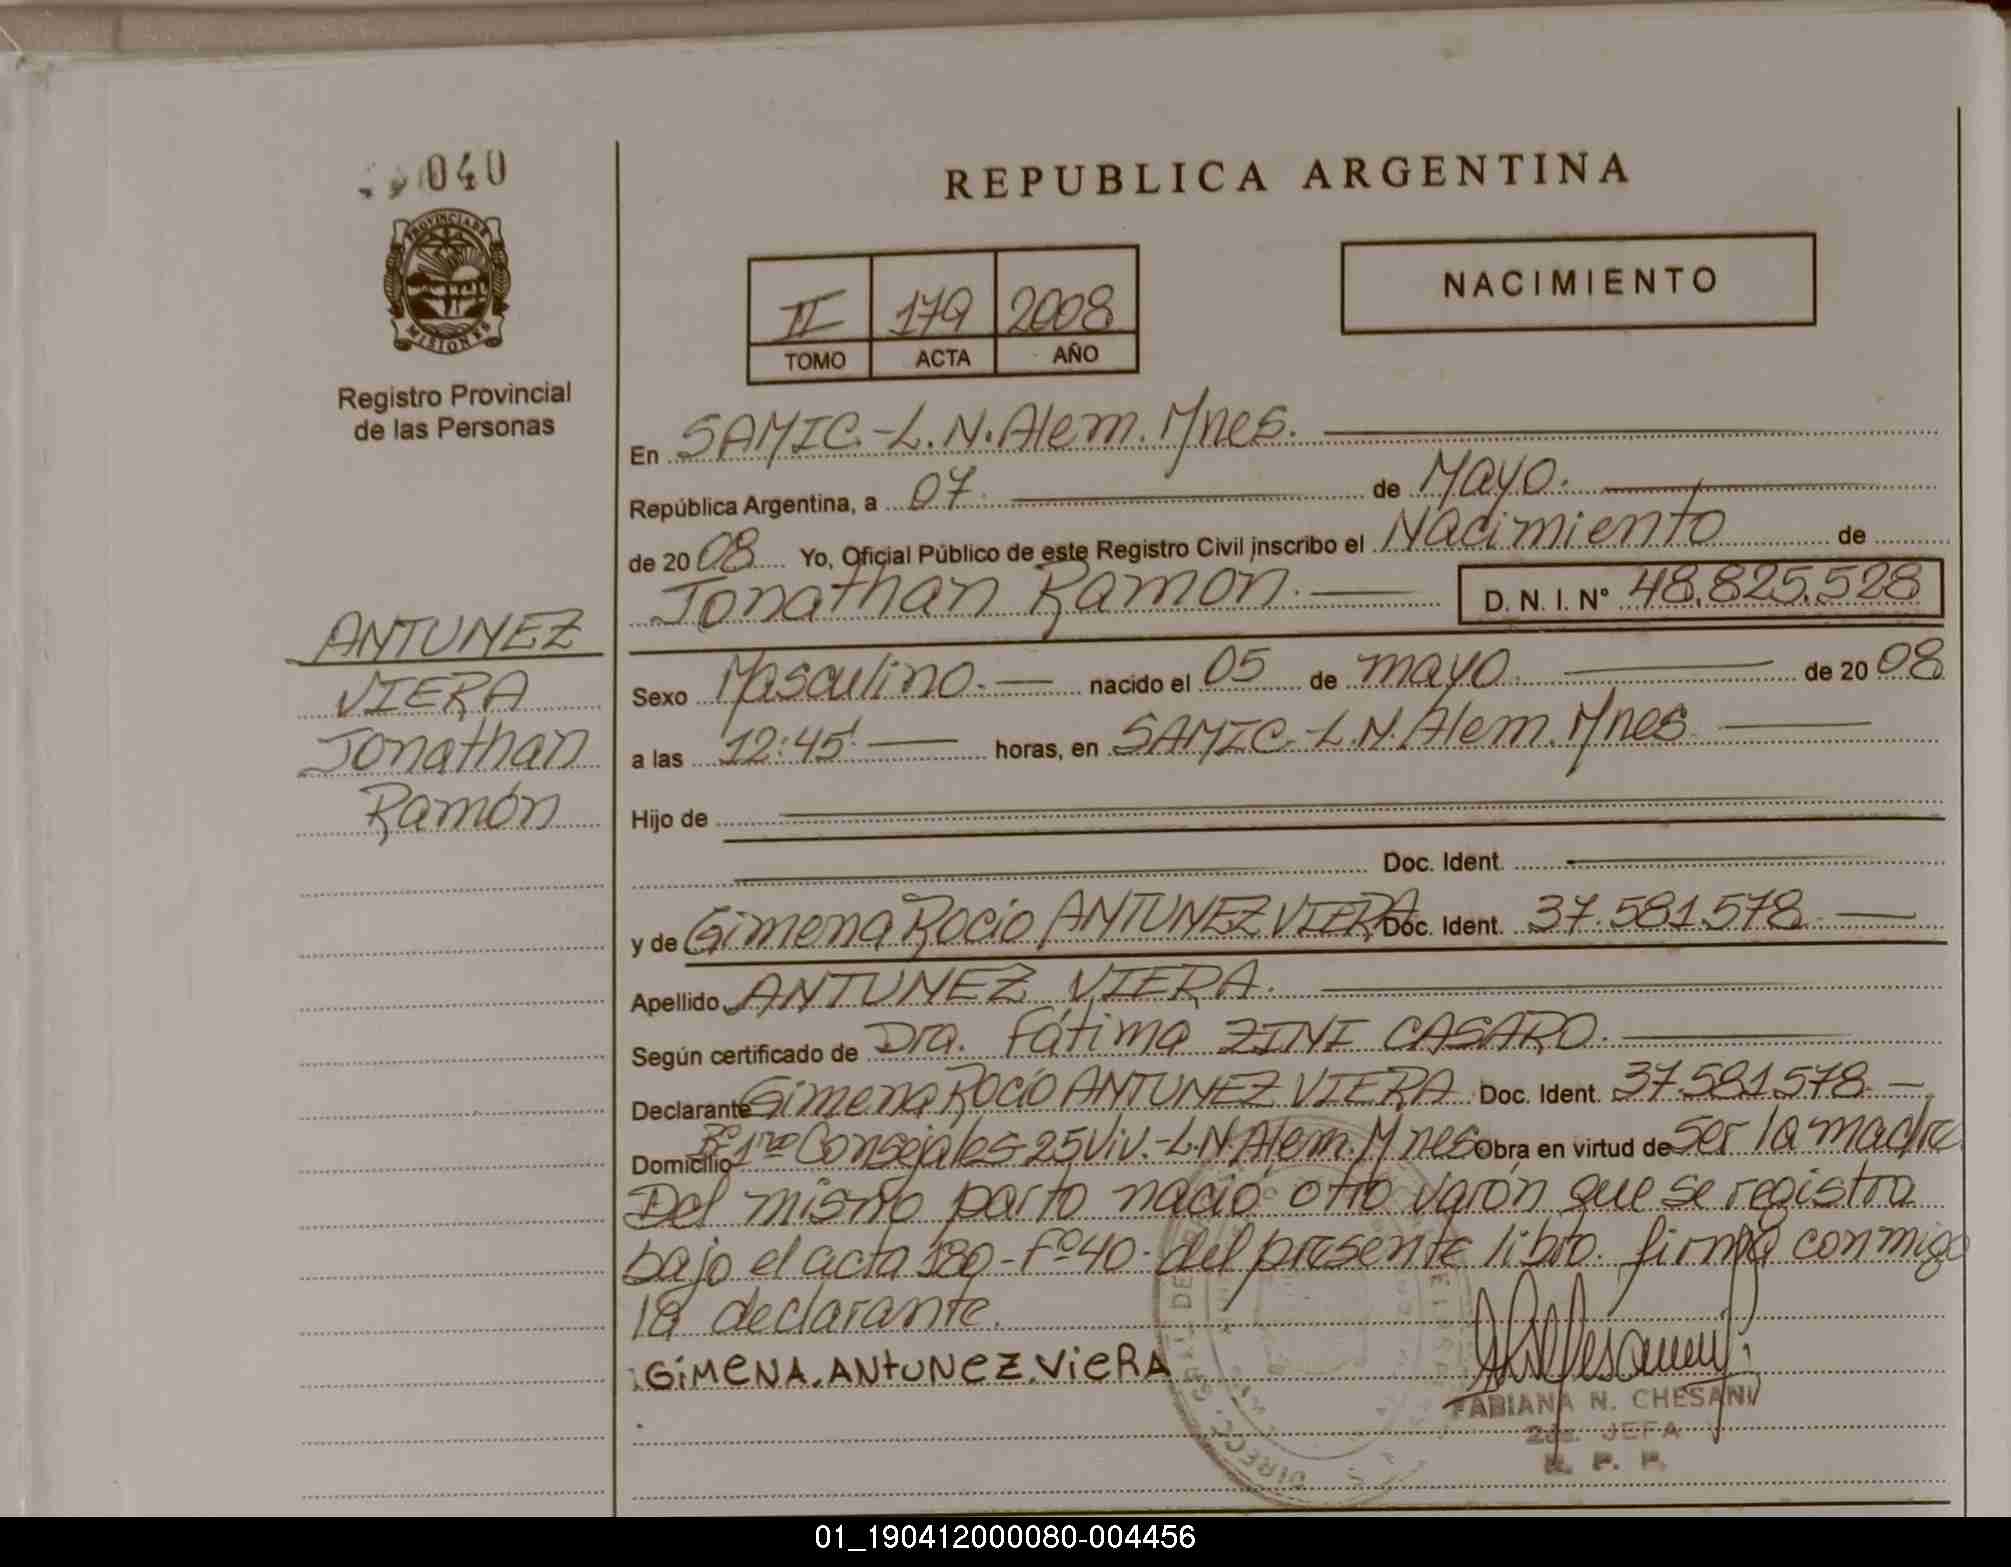 040
PROVINCIA DE
MISIONES
Registro Provincial
de las Personas
ANTUNEZ
VIERA
Jonathan
Ramón
REPUBLICA ARGENTINA
NACIMIENTO
II 179 2008
TOMO ACTA AÑO
En SAMIC.-L.N.Alem.Mnes.
República Argentina, a 07. de Mayo.
de 2008 Yo, Oficial Público de este Registro Civil inscribo el Nacimiento de
Jonathan Ramon. D. N. I. N° 48.825.528
Sexo Masculino.- nacido el 05 de mayo. de 2008
a las 12:45' horas, en SAMIC.-L.N.Alem.Mnes
Hijo de
Doc. Ident.
y de Gimena Rocio ANTUNEZ VIERA Doc. Ident. 37.581.578
Apellido ANTUNEZ VIERA.
Según certificado de Dra. Fátima ZINI CASARO.
Declarante Gimena Rocío ANTUNEZ VIERA Doc. Ident. 37.581.578
Domicilio B° 1ro Consejales-25Viv.-L.N.Alem.Mnes Obra en virtud de ser la madre
Del mismo parto nació otro varón que se registra
bajo el acta 180-F°40- del presente libro. firma conmigo
la declarante.
GiMENA.ANtUNEZ.ViERA
FABIANA N. CHESANI
2da. JEFA
R. P. P.
01_190412000080-004456